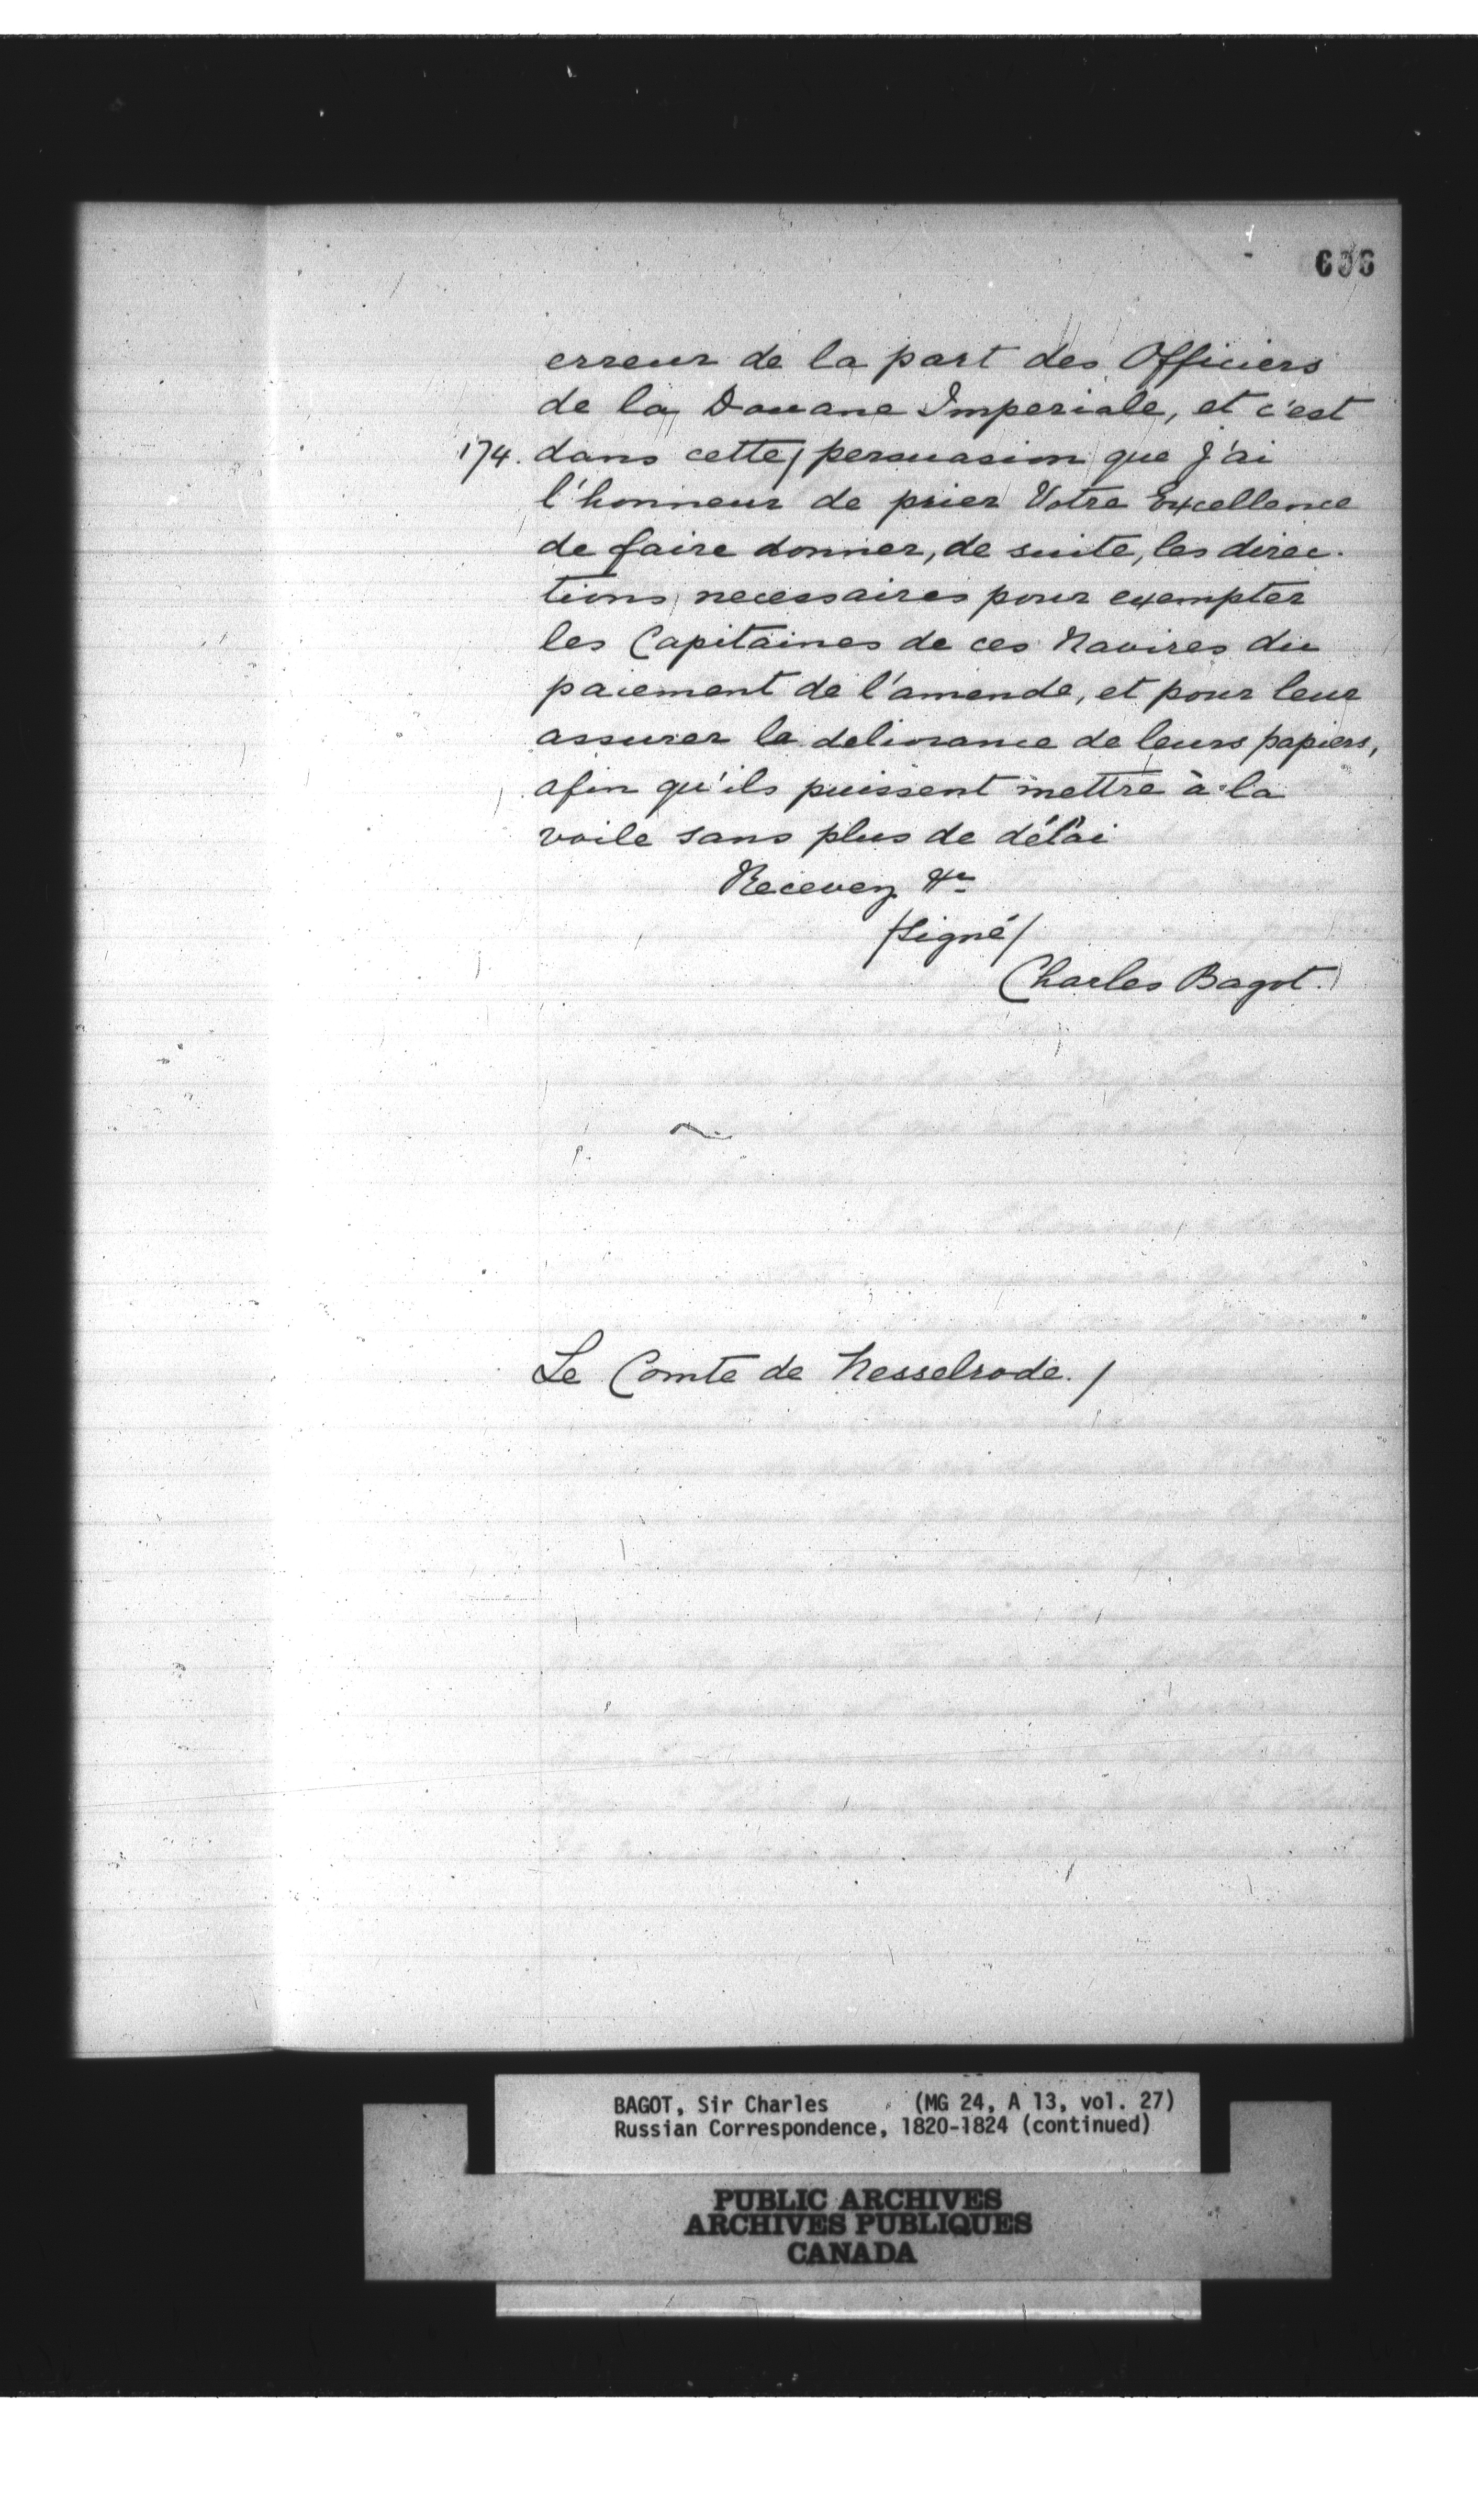 606
erreur de la part des Officiers
de la Douane Imperiale, et c'est
174. dans cette / persuasion que j'ai
l'honneur de prier Votre Excellence
de faire donner, de suite, les direc-
tions necessaires pour exempter
les Capitaines de ces Navires du
paiement de l'amende, et pour leur
assurer la delivrance de leurs papiers,
afin qu'ils puissent mettre à la
voile sans plus de délai
Recevez &c
/Signé/
Charles Bagot.
Le Comte de Nesselrode. /
BAGOT, Sir Charles (MG 24, A 13, vol. 27)
Russian Correspondence, 1820-1824 (continued)
PUBLIC ARCHIVES
ARCHIVES PUBLIQUES
CANADA